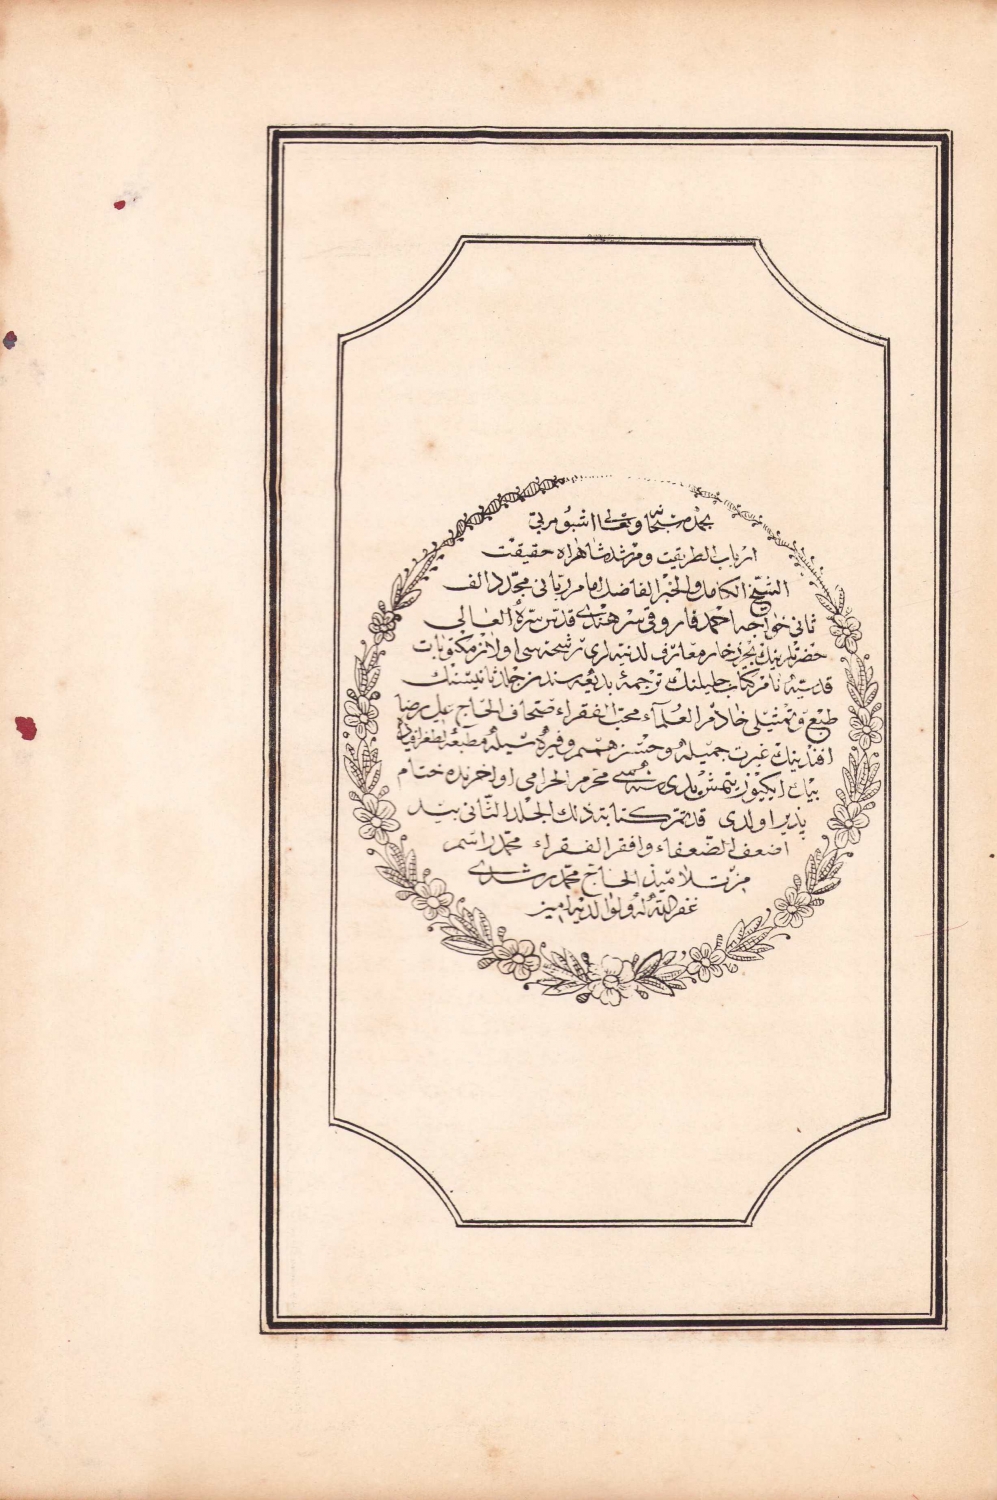 بحمده سبحانه وتعالى اشبو مربئ
ارباب الطريقت ومرشد شاهراه حقيقت
الشيخ الكامل والحبر الفاضل امام ربانى مجدد الف
ثانى خواجه احمد فاروقى سرهندى قدس سره العالى
حضرتلرينك بحر زخار معارف لدنيه لرى رشحه سى اولان مكتوبات
قدسيه نام كتاب جليلنك ترجمۀ بديعه سندن جلد ثانيسنك
طبع وتمثيلى خادم العلماء محب الفقراء صحاف الحاج على رضا
افندينك غيرت جميله و حسن همم وفيره سيله مطبعه
بيك ايكيوز يتمش يدى سنه سى محرم الحرامى اواخرنده ختام
پذير اولدى قدتم كتابة ذلك الجلد الثانى بيد
اضعف الضعفاء وافقر الفقراء محمد راسم
من تلاميذ الحاج محمد رشدى
غفر الله له ولوالديه امين